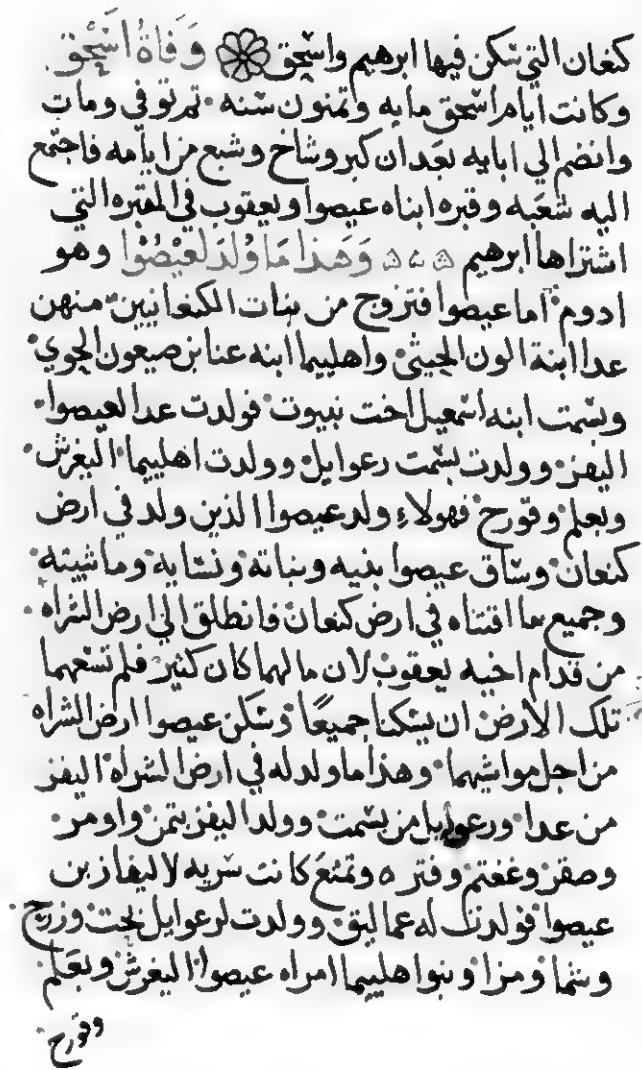 كنعان التي سكن فيها ابرهيم واسحق وَفَاةُ اسْحٰق
وكانت ايام اسحق مايه وثمنون سنه تمر توفي ومات
وانضم الي ابايه بعد ان كبر وشاخ وشبع من ايامه فاجتمع
اليه شعبه وقبره ابناه عيصوا ويعقوب في المقبره التي
اشتراها ابرهيم وَهَذا مَا وُلدَ لعيْصُوا وهو
ادوم اما عيصوا فتزوج من بنات الكنعانيين منهن
عدا ابنة الون الحيثي واهليبما ابنه عنا بن صبعون الحوي
وبسمت ابنه اسمعيل اخت نبيوت فولدت عدا لعيصوا
اليفز وولدت بسمت رعوايل وولدت اهليبما اليغرش
ويعلم وقورح فهولاء ولد عيصوا الذين ولد في ارض
كنعان وساق عيصوا بنيه وبناته ونسايه وماشيته
وجميع ما اقتناه في ارض كنعان فانطلق الي ارض الشراه
من قدام اخيه يعقوب لان مالهما كان كثير فلم تسعهما
تلك الارض ان يسكنا جميعًا وسكن عيصوا ارض الشراه
من اجل مواشيهما وهذا ما ولد له في ارض الشراه اليفز
من عدا ورعوايل من بسمت وولد اليفز يتمن واومر
وصقر وغغتم وقنز ه وتمنع كانت سريه لاليفاز بن
عيصوا فولدت له عماليق وولدت لرعوايل نحت وزرح
وشما ومزا وبنوا هليبما امراه عيصوا اليغرش ويعلم
وقورح